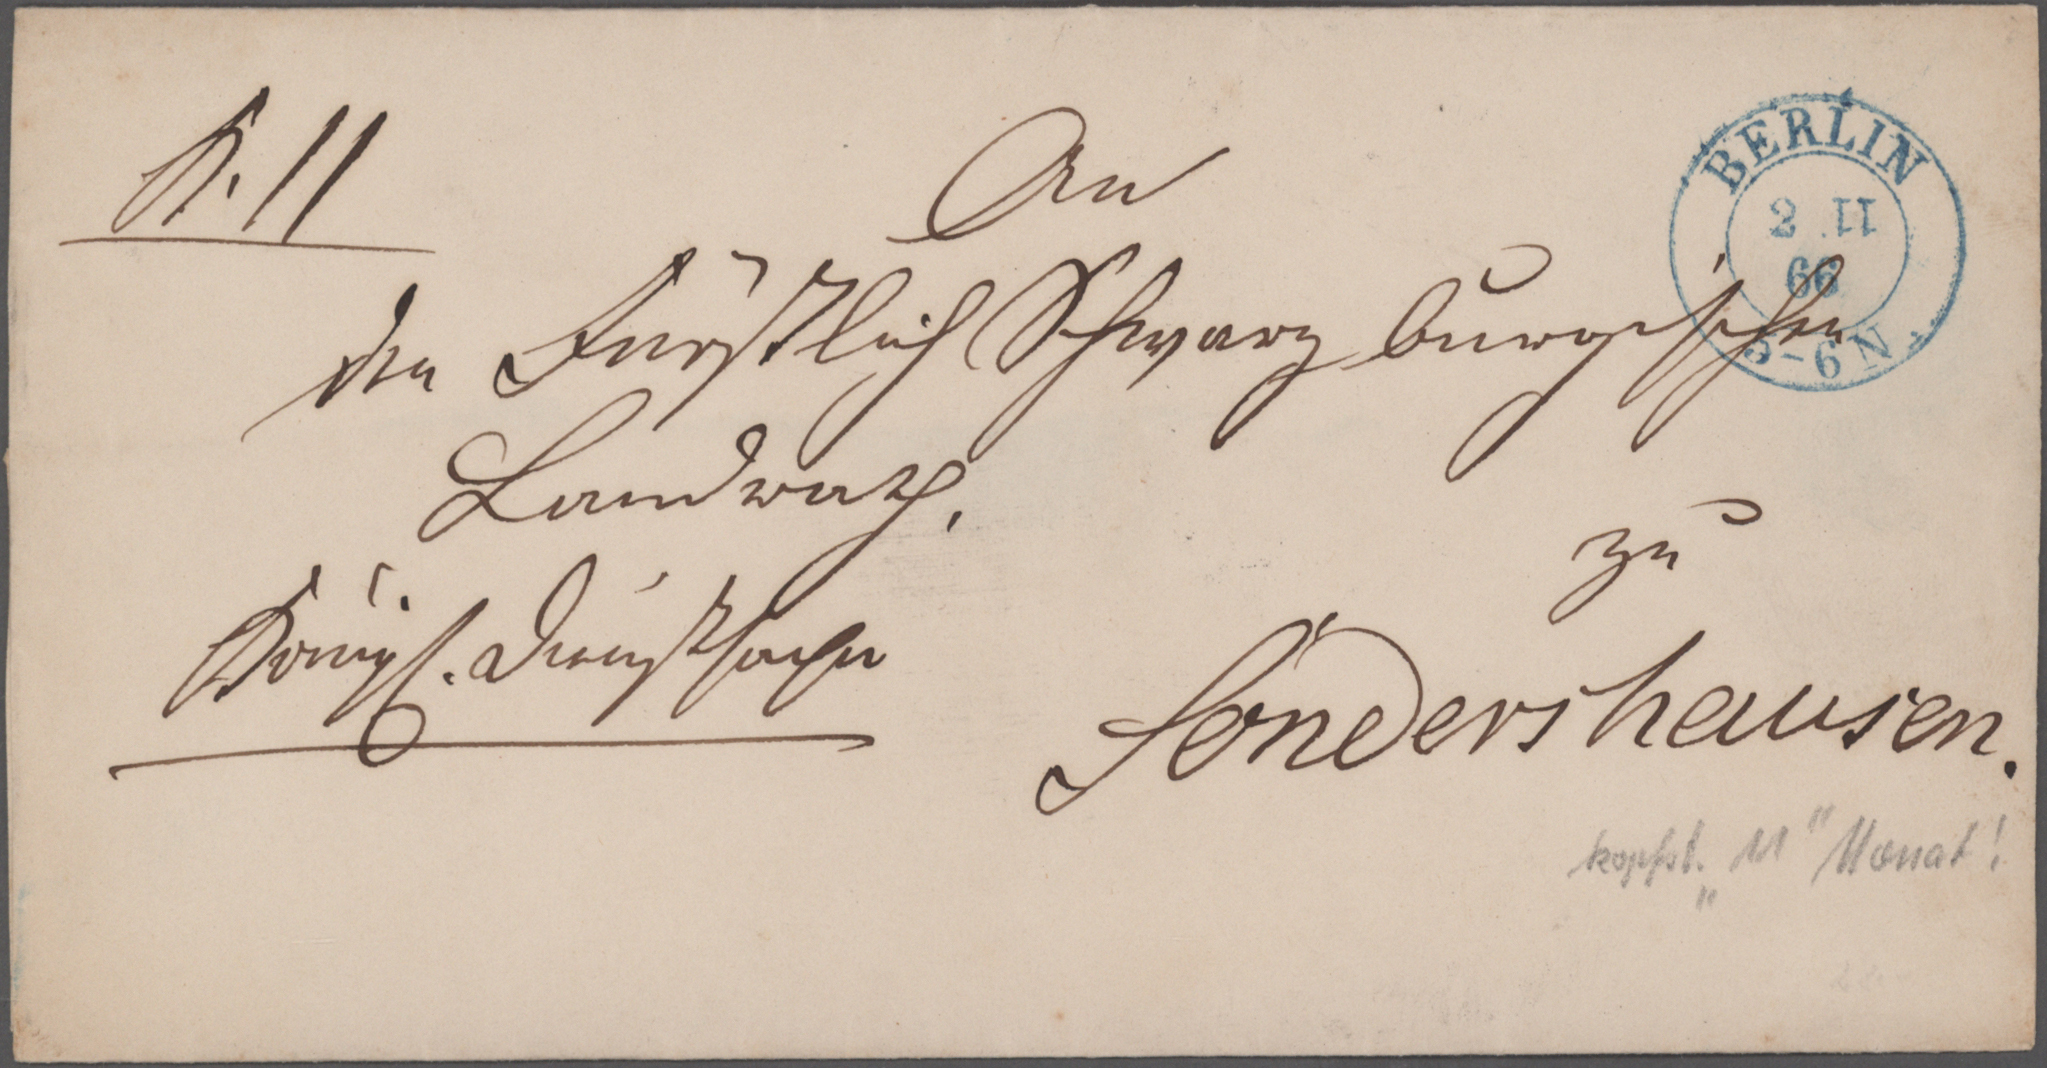 K. 11
An
den Fürstlich Schwarzburgischen
Landrath,
zu
Königl. Dienstsache
Sondershausen.
BERLIN
2 11
66
5-6 N.
kopfst. "11" Monat!